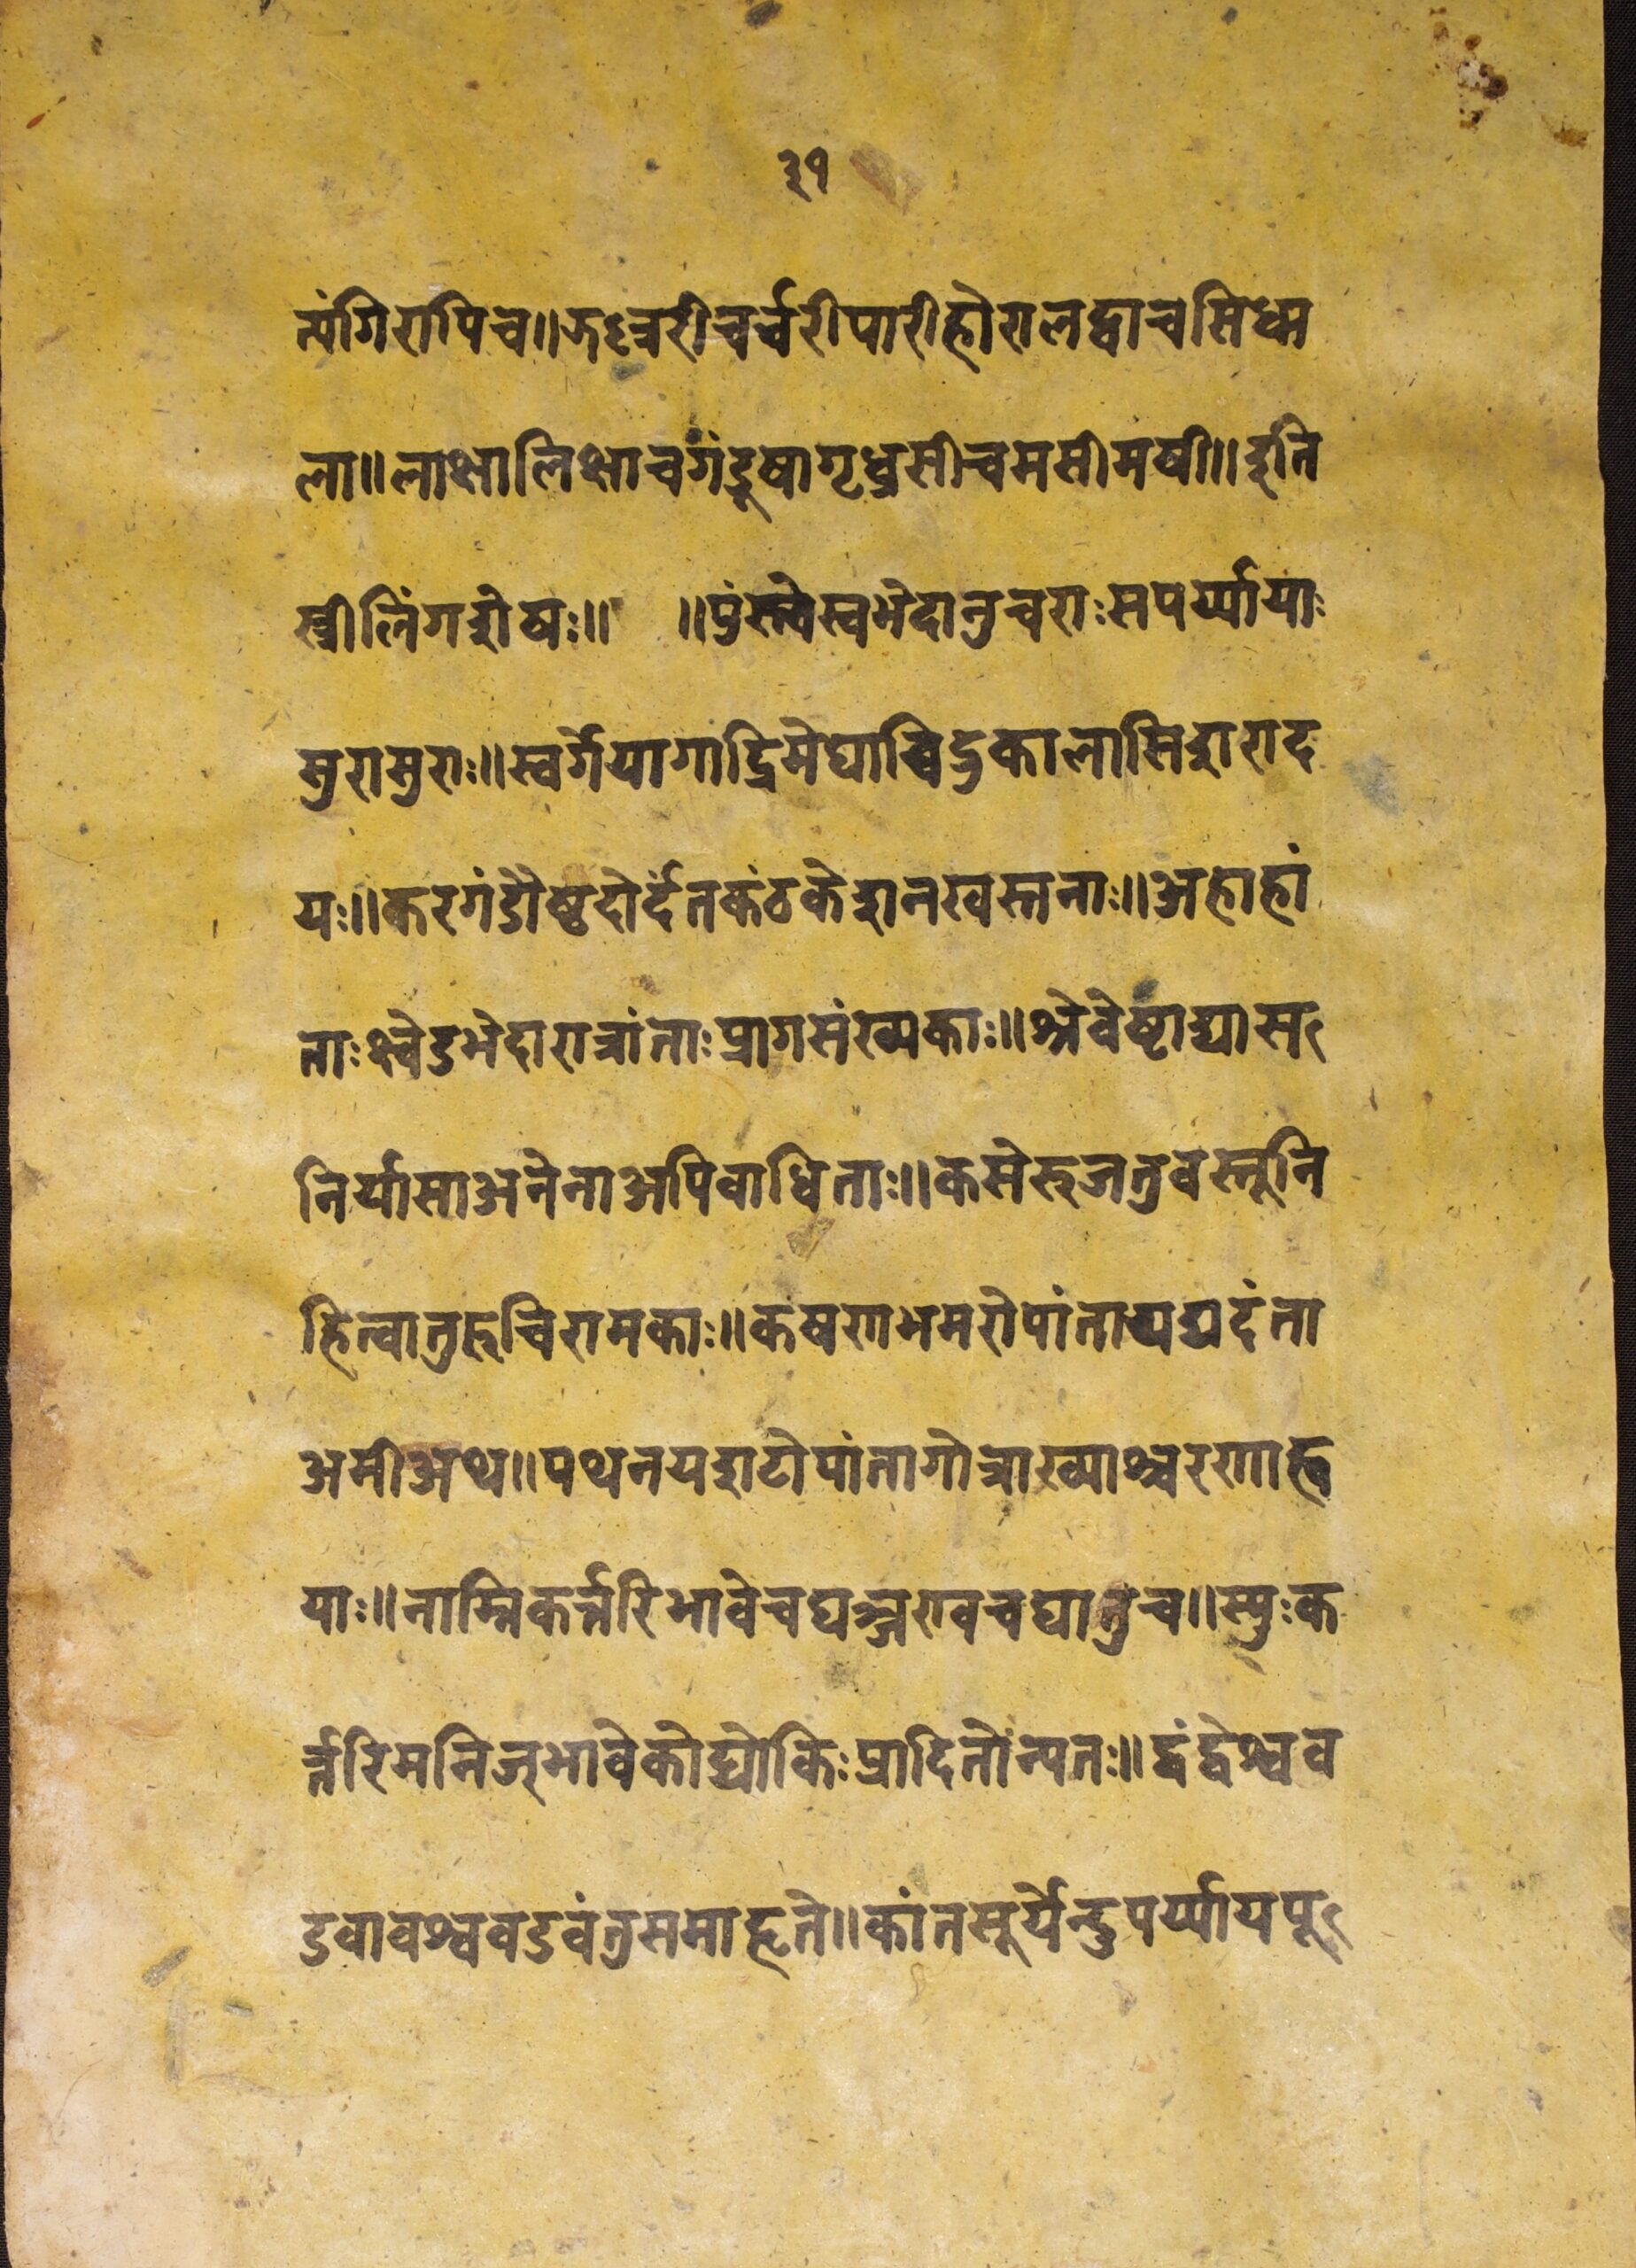 ३१
त्यंगिरापिच॥ऊझर्रीचर्चरीपारीहोरालट्वाचसिध्म
ला॥लाक्षालिक्षाचगंडूषागृध्रसीचमसीमषी॥इति
स्त्रीलिंगशेषः॥ ॥पुंस्त्वेस्वभेदानुचराःसपर्य्यायाः
सुरासुराः॥स्वर्गेयागाद्रिमेघाब्धिद्रुकालासिशराद
यः॥करगंडौष्ठदोर्दंतकंठकेशनखस्तनाः॥अह्नाहां
ताःक्ष्वेडभेदारात्रांताःप्रागसंख्यकाः॥श्रीवेष्टाद्यास
निर्यासाअनेनाअपिबाधिताः॥कसेरुजतुवस्तूनि
हित्वातुरुविरामकाः॥कषणभमरोपांतायद्यदंता
अमीअथ॥पथनयशटोपांतागोत्राख्याश्चरणाह्व
याः॥नाम्निकर्त्तरिभावेचघञ्जरुवचघातुच॥स्युःक
र्त्तरिमनिज्भावेकोद्योकिःप्रादितोन्यतः॥द्वंद्वेश्वव
डवावश्ववडवंतुसमाहृते॥कांतसूर्येन्दुपर्य्यायपू